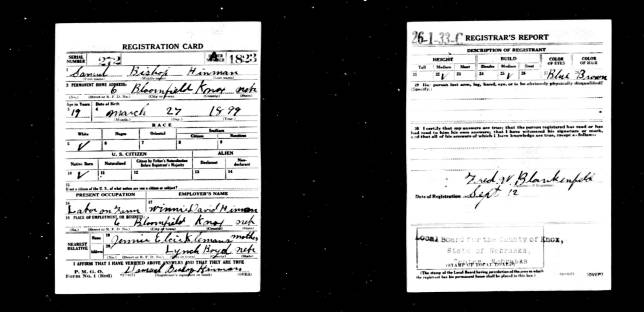 REGISTRATION CARD
SERIAL NUMBER 272 A 1823
1 Samuel Bishop Hinman
2 PERMANENT HOME ADDRESS:
6 Bloomfield Knox nebr
Age in Years Date of Birth
3 19 4 March 27 1899
RACE
White Negro Oriental Indian
Citizen Noncitizen
5 ✓ 6 7 8 9
U. S. CITIZEN ALIEN
Native Born Naturalized Citizen by Father's Naturalization Before Registrant's Majority Declarant Non-declarant
10 ✓ 11 12 13 14
15
If not a citizen of the U. S., of what nation are you a citizen or subject?
PRESENT OCCUPATION EMPLOYER'S NAME
16 Labor on Farm 17 Winnis David Hinman
18 PLACE OF EMPLOYMENT OR BUSINESS:
6 Bloomfield Knox nebr
NEAREST RELATIVE Name 19 Jennie mother
Address 20 Lynch Boyd nebr
I AFFIRM THAT I HAVE VERIFIED ABOVE ANSWERS AND THAT THEY ARE TRUE
P. M. G. O.
Form No. 1 (Red) Samuel Bishop Hinman (OVER)
26-1-33-C REGISTRAR'S REPORT
DESCRIPTION OF REGISTRANT
HEIGHT BUILD COLOR OF EYES COLOR OF HAIR
Tall Medium Short Slender Medium Stout
21 22 ✓ 23 24 25 ✓ 26 27 Blue 28 Brown
29 Has person lost arm, leg, hand, eye, or is he obviously physically disqualified?
(Specify.)
30 I certify that my answers are true; that the person registered has read or has had read to him his own answers; that I have witnessed his signature or mark, and that all of his answers of which I have knowledge are true, except as follows:
Fred W. Blankenfeld
Date of Registration Sept 12
Local Board for the County of Knox,
State of Nebraska,
Center, Nebraska
(STAMP OF LOCAL BOARD)
(The stamp of the Local Board having jurisdiction of the area in which the registrant has his permanent home shall be placed in this box.)
(OVER)